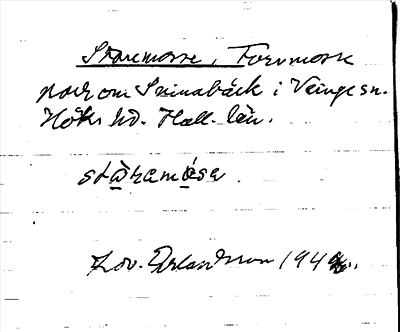 Staremosse, Torvmosse
norr om Svinabäck i Veinge sn.
Höks hd. Hall. län.
ståramåsa.
Lov. Erlandsson